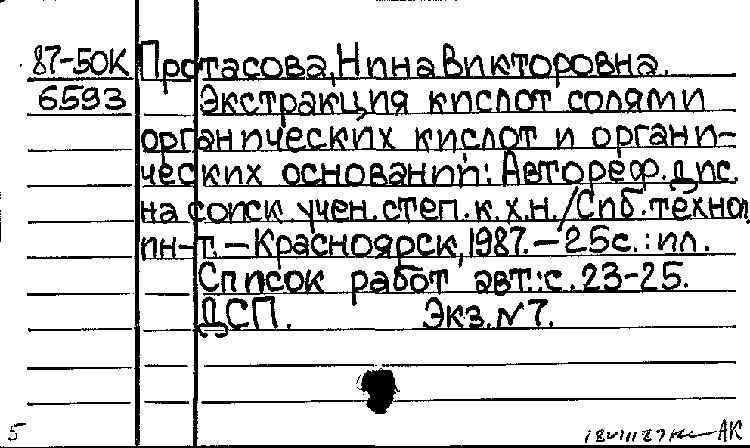 87-50К Протасова, Нина Викторовна.
6593 Экстракция кислот солями
органических кислот и органи-
ческих оснований: Автореф. дис.
на соиск. учен. степ. к. х. н. / Спб. технол
ин-т. – Красноярск, 1987. – 25с. : ил.
Список работ авт.: с. 23-25.
ДСП. Экз. №7.
5 АК